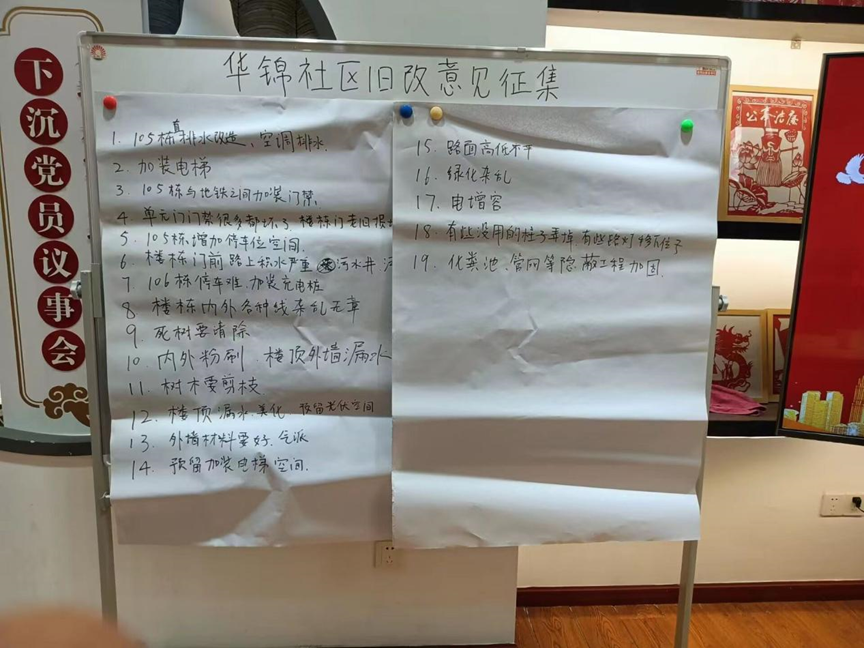 华锦社区旧改意见征集
下沉党员议事会
1. 105栋真排水改造、空调排水.
2. 加装电梯
3. 105栋与地铁之间加装门禁.
4 单元门门禁很多都坏了. 楼栋门老旧损
5 105栋增加停车位空间.
6 楼栋门前路上积水严重 污水井
7 106栋停车难.加装充电桩
8 楼栋内外各种线杂乱无章
9. 死树要清除
10. 内外粉刷 楼顶外墙漏水
11. 树木要剪枝
12. 楼顶漏水.美化 预留光伏空间
13. 外墙材料要好、气派
14. 预留加装电梯空间.
15. 路面高低不平
16. 绿化杂乱
17. 电增容
18. 有些没用的柱子弄掉 有些路灯移位子
19. 化粪池、管网等隐蔽工程加固.